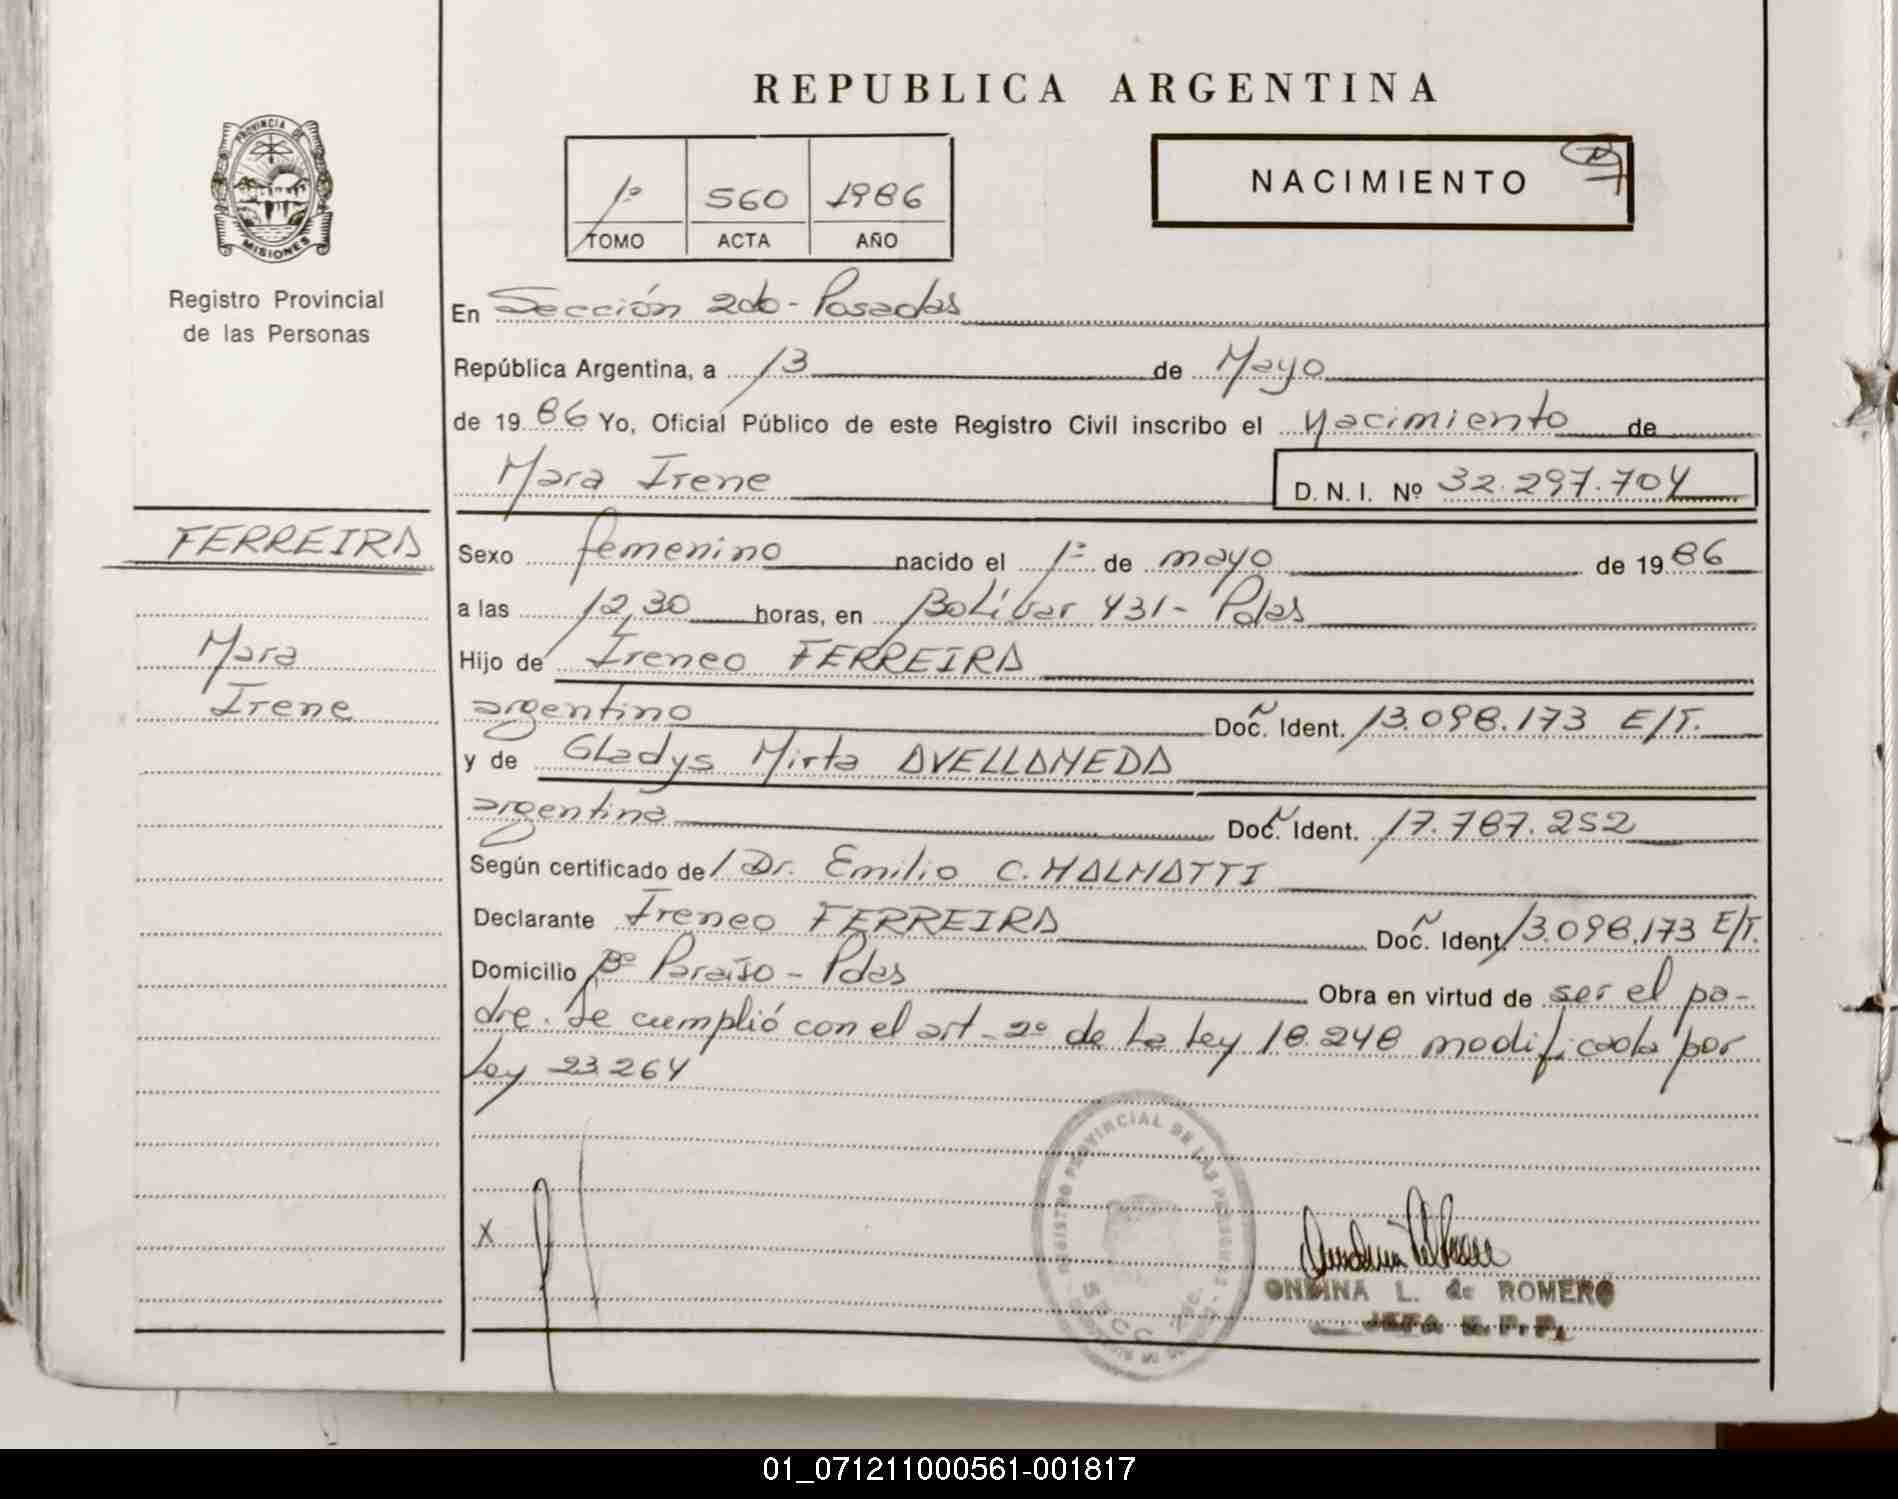 REPUBLICA ARGENTINA
PROVINCIA DE
MISIONES
Registro Provincial
de las Personas
1º 560 1986
TOMO ACTA AÑO
NACIMIENTO
En Sección 2da - Posadas
República Argentina, a 13 de Mayo
de 1986 Yo, Oficial Público de este Registro Civil inscribo el Nacimiento de
Mara Irene D. N. I. Nº 32.297.704
FERREIRA
Mara
Irene
Sexo femenino nacido el 1º de mayo de 1986
a las 12,30 horas, en Bolívar 431 - Pdas
Hijo de Ireneo FERREIRA
argentino Doc. Ident. 13.098.173 E/T.
y de Gladys Mirta AVELLANEDA
argentina Doc. Ident. 17.787.252
Según certificado de Dr. Emilio C. MALMATTI
Declarante Ireneo FERREIRA Doc. Ident. 13.098.173 E/T.
Domicilio Bº Paraíso - Pdas Obra en virtud de ser el pa-
dre. Se cumplió con el art - 2º de la Ley 18.248 modificada por
Ley 23.264
REGISTRO PROVINCIAL DE LAS PERSONAS
SECC
X
ONDINA L. de ROMERO
JEFA R. P. P.
01_071211000561-001817